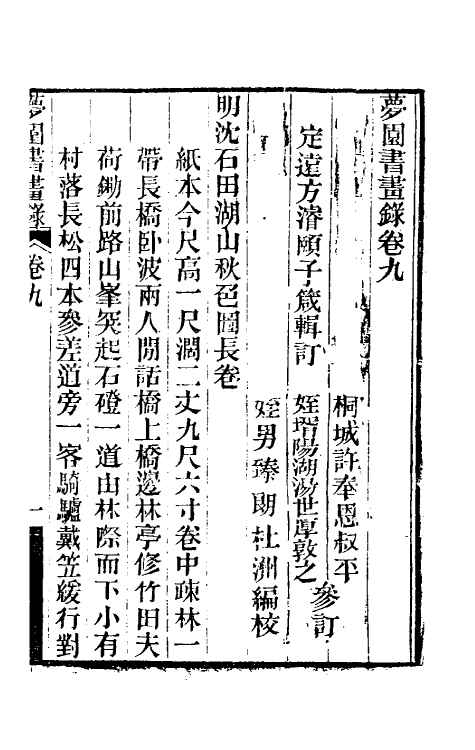 夢園書畫錄卷九
桐城許奉恩叔平
定遠方濬頤子箴輯訂
姪壻陽湖湯世厚敦之
參訂
姪男臻朗杜洲編校
明沈石田湖山秋色圖長卷
紙本今尺高一尺濶二丈九尺六寸卷中疎林一
帶長橋卧波兩人閒話橋上橋邊林亭修竹田夫
荷鋤前路山峯突起石磴一道山林際而下小有
村落長松四本參差道旁一客騎驢戴笠緩行對
夢園書畫錄
卷九
一